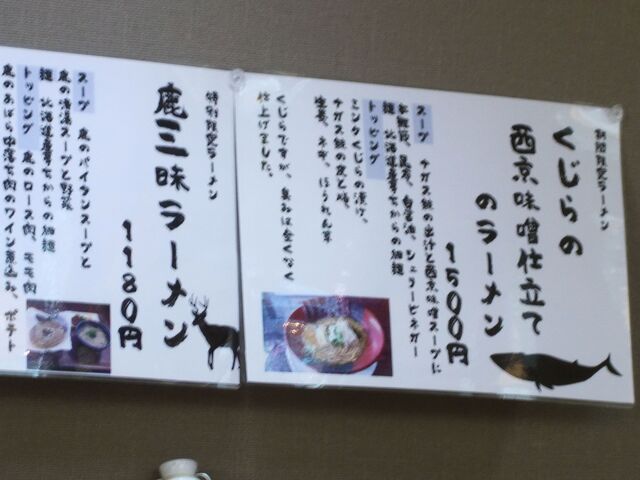 期間限定ラーメン
くじらの
西京味噌仕立て
のラーメン
1500円
スープ ナガス鯨の出汁と西京味噌スープに
本鰹節、昆布、白醤油、シェリービネガー
麺 北海道産春ちからの細麺
トッピング
ミンククじらの漬け、
ナガス鯨の皮と鰓、
生姜、ネギ、ほうれん草
くじらですが、臭みは全くなく
仕上げました。
特別限定ラーメン
鹿三昧ラーメン
1180円
スープ 鹿のパイタンスープと
鹿の清湯スープと野菜
麺 北海道産春ちからの細麺
トッピング 鹿のロース肉、モモ肉
鹿のあばら中落ち肉のワイン煮込み、ポテト